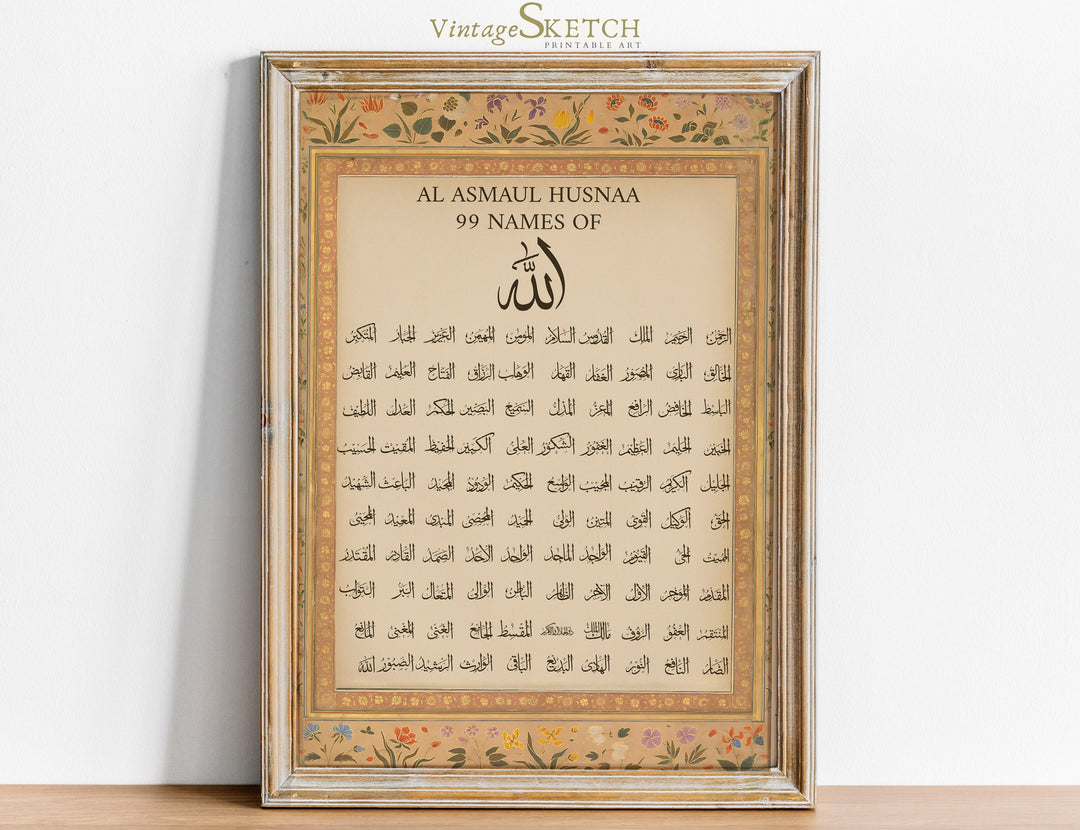 VintageSKETCH
PRINTABLE ART
AL ASMAUL HUSNAA
99 NAMES OF
الله
الرحمن الرحيم الملك القدوس السلام المؤمن المهيمن العزيز الجبار المتكبر
الخالق البارئ المصور الغفار القهار الوهاب الرزاق الفتاح العليم القابض
الباسط الخافض الرافع المعز المذل السميع البصير الحكم العدل اللطيف
الخبير الحليم العظيم الغفور الشكور العلي الكبير الحفيظ المقيت الحسيب
الجليل الكريم الرقيب المجيب الواسع الحكيم الودود المجيد الباعث الشهيد
الحق الوكيل القوي المتين الولي الحميد المحصي المبدئ المعيد المحيي
المميت الحي القيوم الواجد الماجد الواحد الاحد الصمد القادر المقتدر
المقدم المؤخر الاول الآخر الظاهر الباطن الوالي المتعال البر التواب
المنتقم العفو الرؤوف مالك الملك ذو الجلال والاكرام المقسط الجامع الغني المغني المانع
الضار النافع النور الهادي البديع الباقي الوارث الرشيد الصبور الله